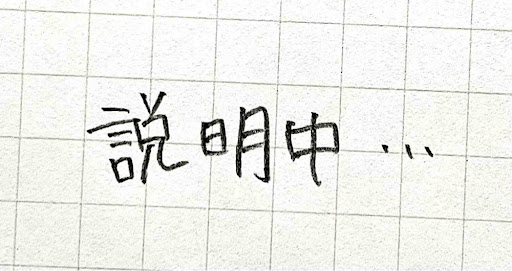 説明中...